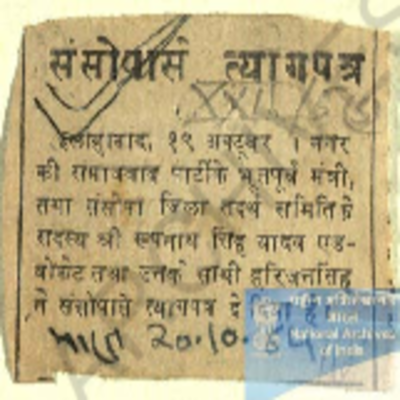 संसोपासे त्यागपत्र
इलाहाबाद, १९ अक्टूबर । नगर
की समाजवाद पार्टीके भूतपूर्व मंत्री,
तथा संसोपा जिला तदर्थ समितिके
सदस्य श्री रूपनाथ सिंह यादव एड-
वोकेट तथा उनके साथी हरिजनसिंह
ने संसोपासे त्यागपत्र दे दिया है
भारत 20.10.
राष्ट्रीय अभिलेखागार
भारत
National Archives
of India